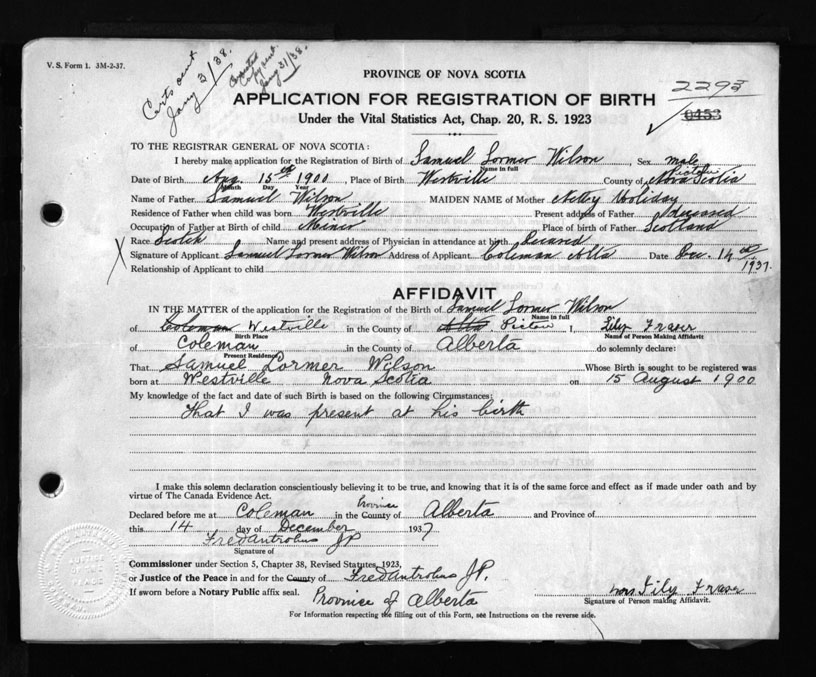 V. S. Form 1. 3M-2-37.
Certs sent
Jany 3/38.
Jany 31/38.
PROVINCE OF NOVA SCOTIA
2293
APPLICATION FOR REGISTRATION OF BIRTH
0453
Under the Vital Statistics Act, Chap. 20, R. S. 1923
TO THE REGISTRAR GENERAL OF NOVA SCOTIA:
I hereby make application for the Registration of Birth of Samuel Lormer Wilson Sex male
Name in full
Pictou
Date of Birth Aug. 15th 1900, Place of Birth Westville County of Nova Scotia
Month Day Year
Name of Father Samuel Wilson MAIDEN NAME of Mother Netty Holiday
Residence of Father when child was born Westville Present address of Father deceased
Occupation of Father at Birth of child Miner Place of birth of Father Scotland
Race Scotch Name and present address of Physician in attendance at birth Deceased
Signature of Applicant Samuel Lormer Wilson Address of Applicant Coleman Alta Date Dec. 14th 1937.
Relationship of Applicant to child
AFFIDAVIT
IN THE MATTER of the application for the Registration of the Birth of Samuel Lormer Wilson
Name in full
of Coleman Westville in the County of Alta Pictou I, Lily Fraser
Birth Place Name of Person Making Affidavit
of Coleman in the County of Alberta do solemnly declare:
Present Residence
That Samuel Lormer Wilson Whose Birth is sought to be registered was
born at Westville Nova Scotia on 15 August 1900
My knowledge of the fact and date of such Birth is based on the following Circumstances:
That I was present at his birth
I make this solemn declaration conscientiously believing it to be true, and knowing that it is of the same force and effect as if made under oath and by
virtue of The Canada Evidence Act.
Province
Declared before me at Coleman in the County of Alberta and Province of
this 14 day of December 1937
Fred Antrobus JP
Signature of
Commissioner under Section 5, Chapter 38, Revised Statutes, 1923,
or Justice of the Peace in and for the County of Fred Antrobus JP.
If sworn before a Notary Public affix seal. Province of Alberta
Mrs. Lily Fraser
Signature of Person making Affidavit.
For Information respecting the filling out of this Form, see Instructions on the reverse side.